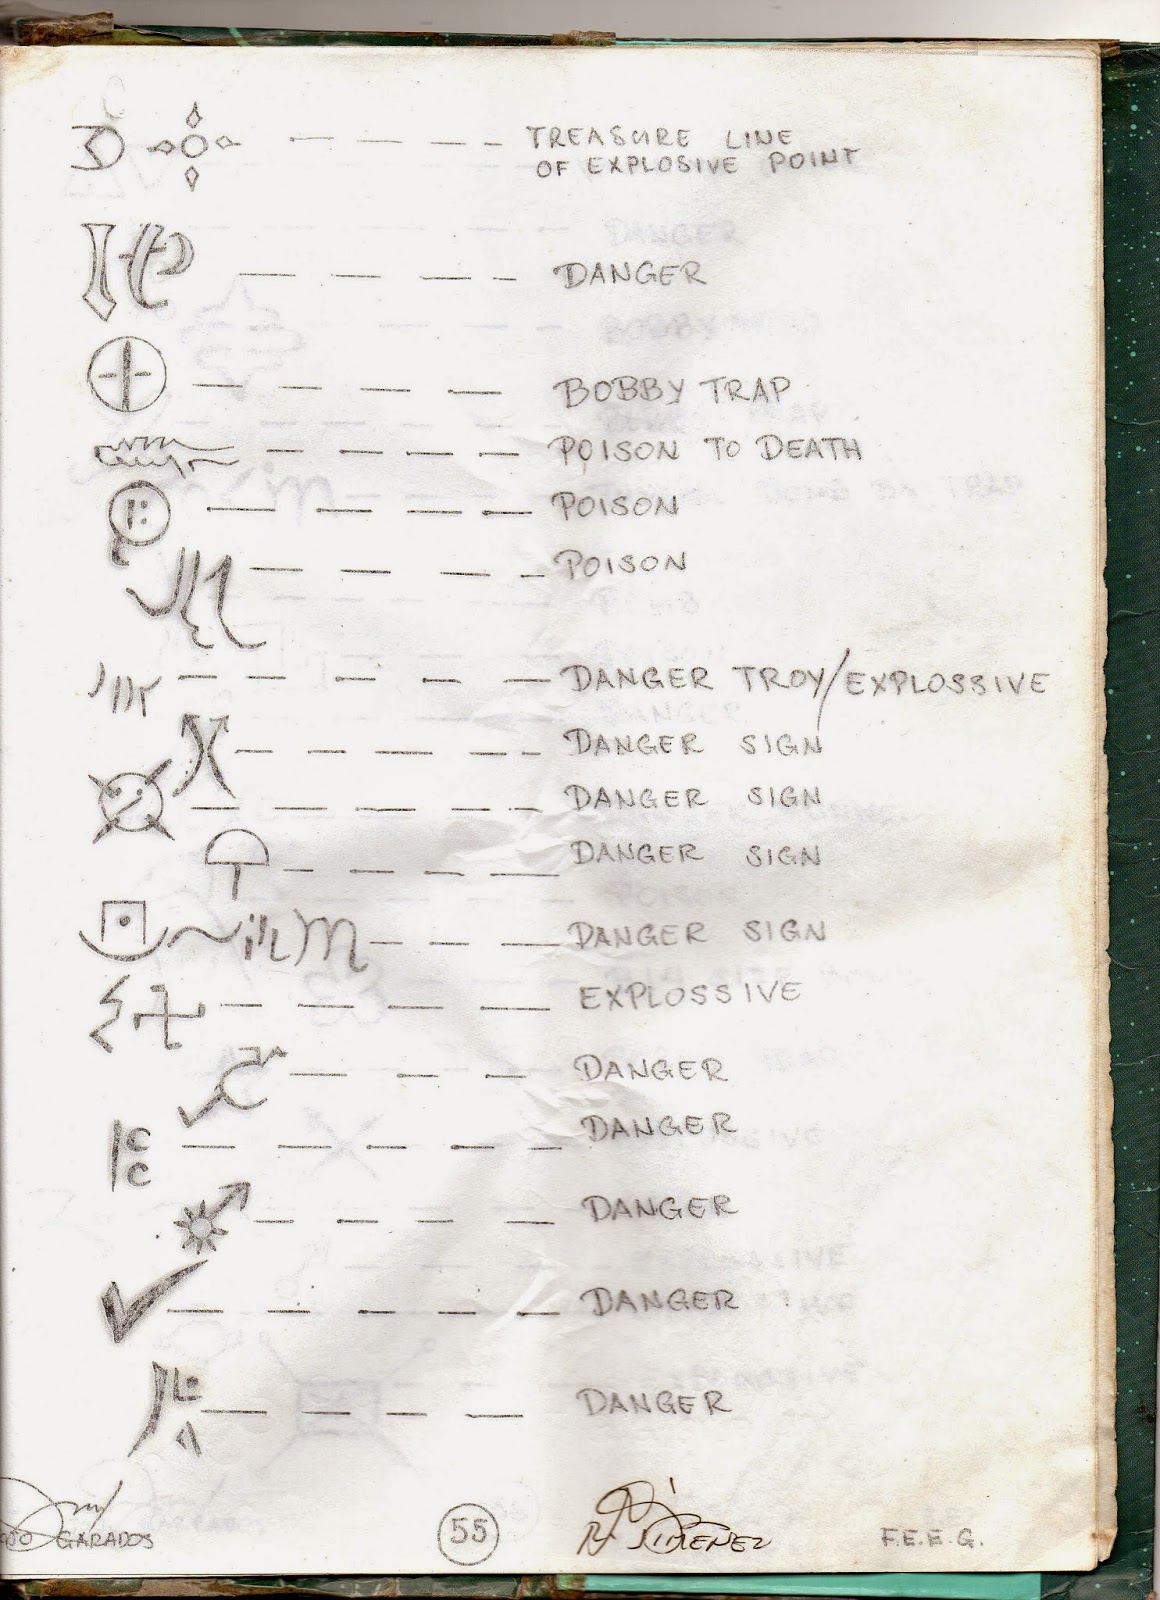 TREASURE LINE
OF EXPLOSIVE POINT
DANGER
BOBBY TRAP
POISON TO DEATH
POISON
POISON
DANGER TROY/EXPLOSSIVE
DANGER SIGN
DANGER SIGN
DANGER SIGN
DANGER SIGN
EXPLOSSIVE
DANGER
DANGER
DANGER
DANGER
DANGER
GARADOS 55 JIMENEZ F.E.E.G.